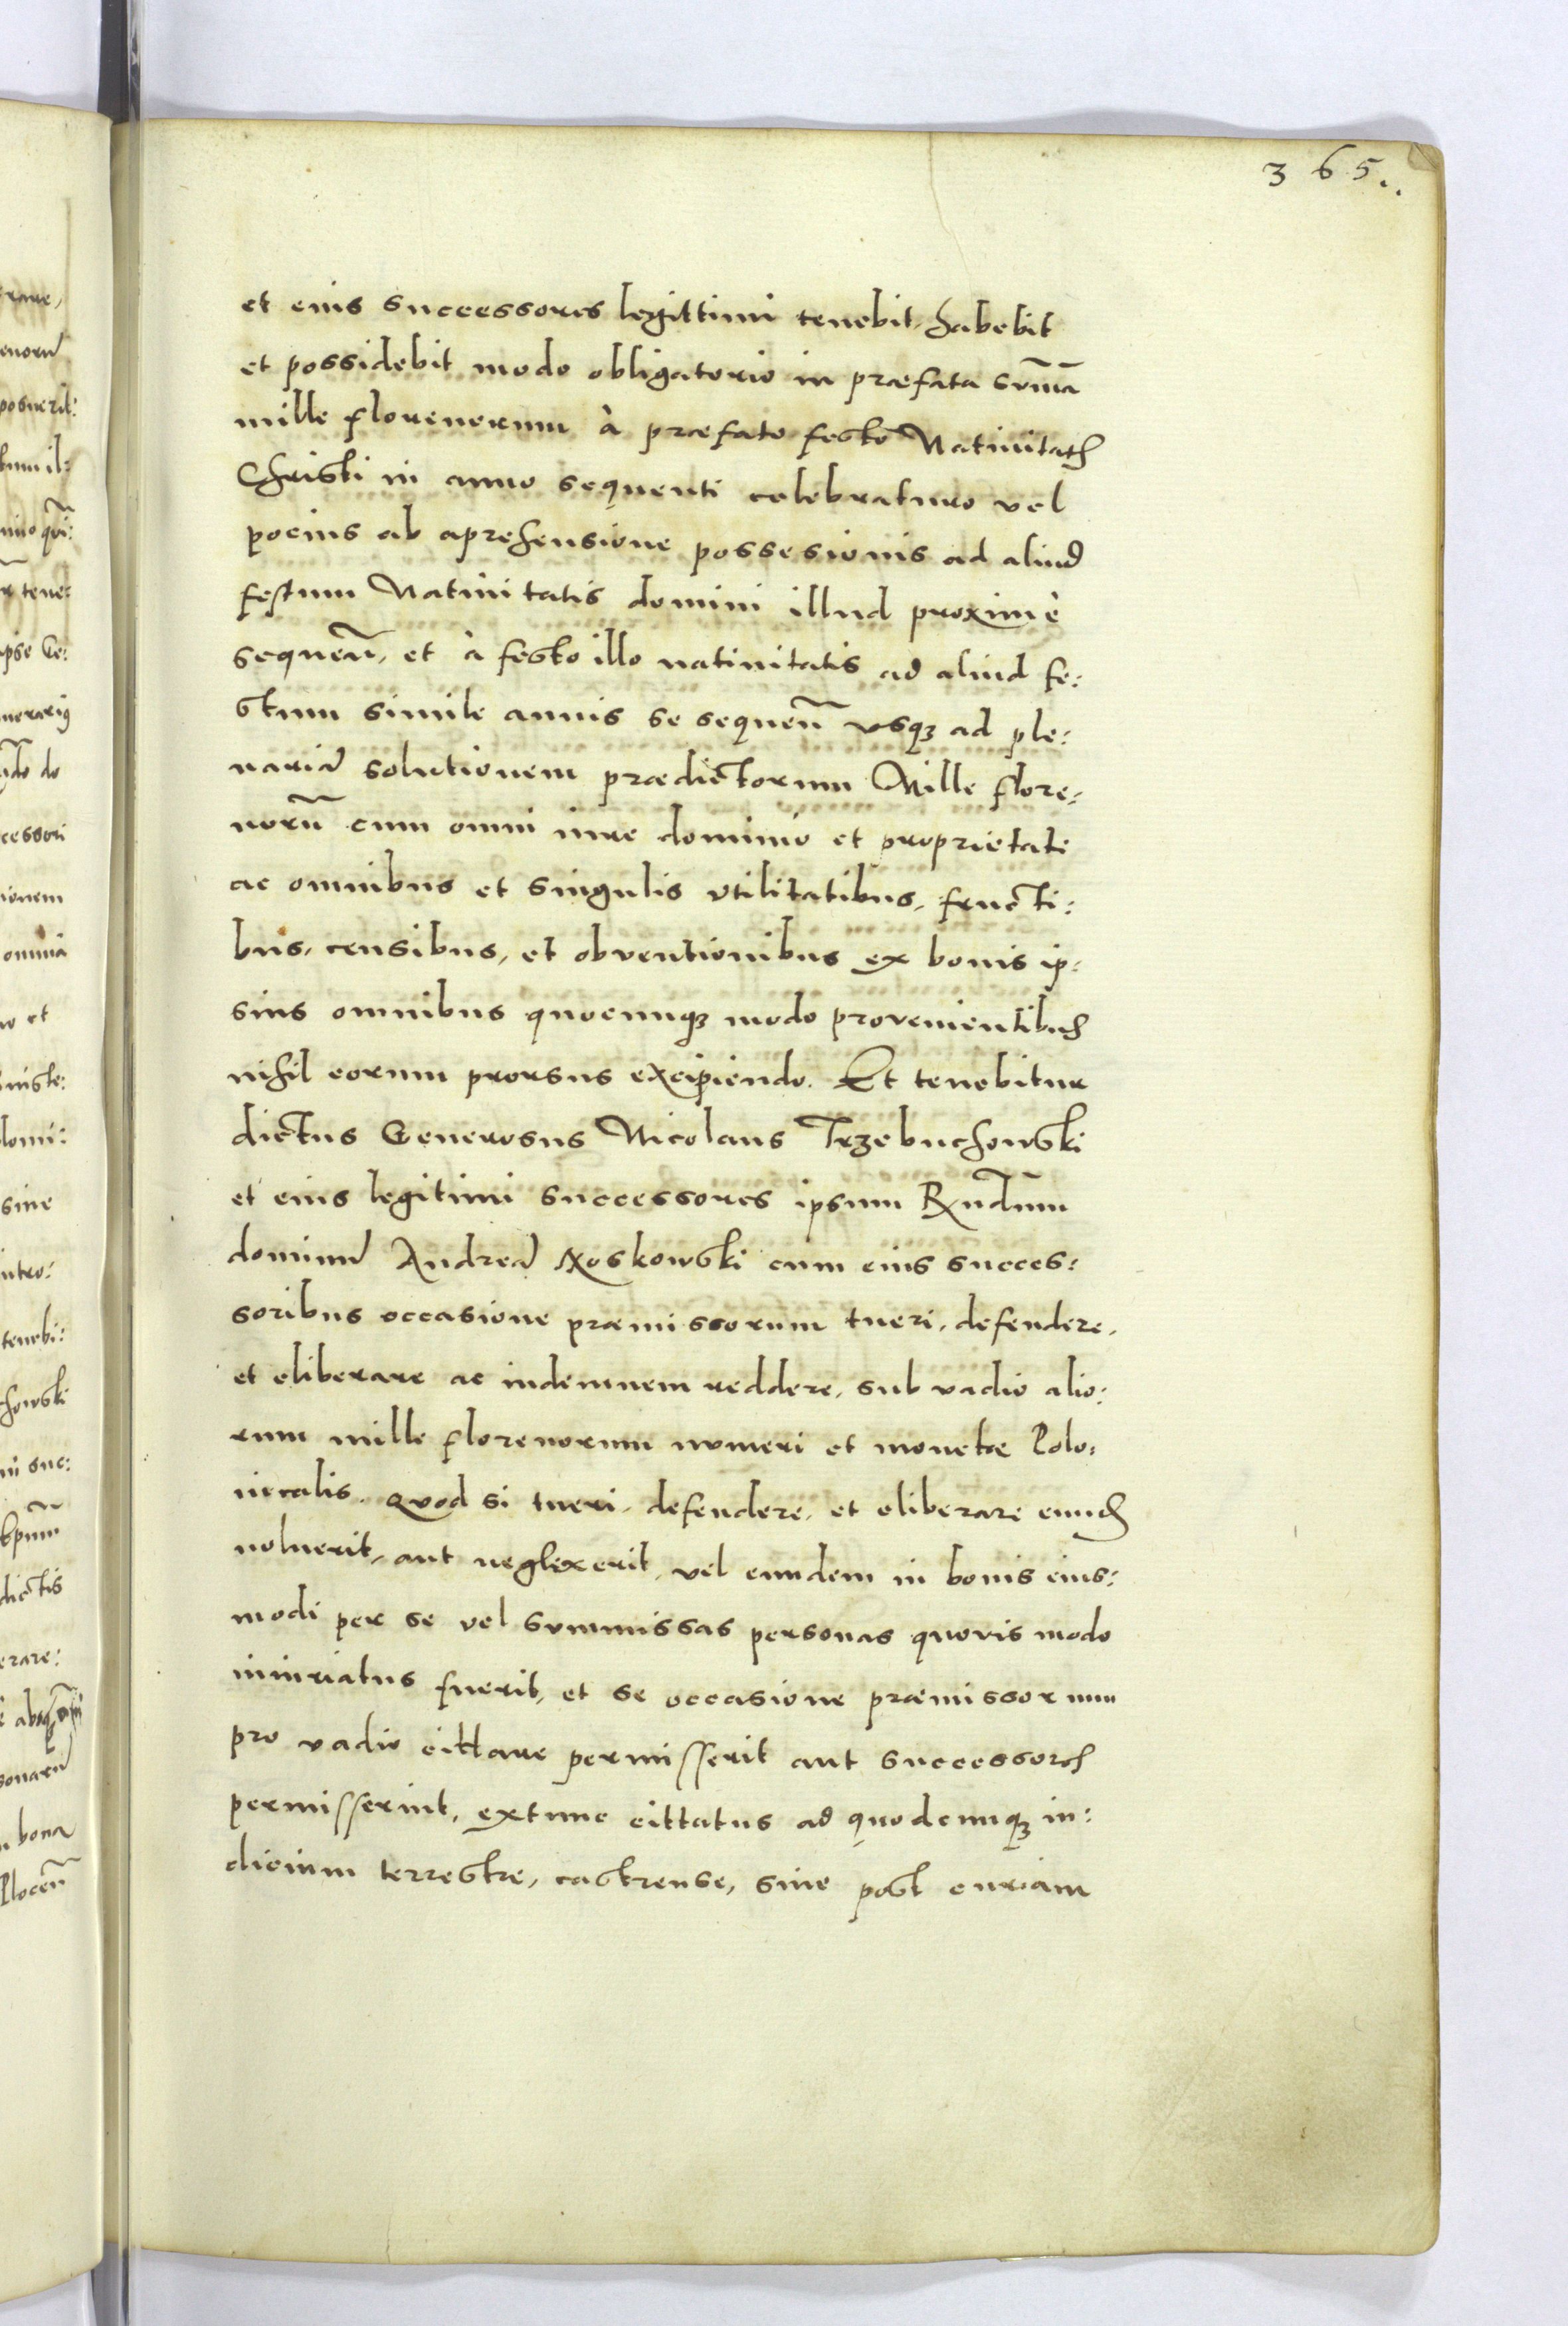 365..
et eius successores legittimi tenebit, habebit
et possidebit modo obligatorio in præfata sum̄a
mille florenorum à præfato festo Natiuitatis
Christi in anno sequenti celebraturo vel
pocius ab aprehensione possesionis ad aliud
festum Natiuitatis domini illud proximè
sequen̄, et à festo illo natiuitatis ad aliud fe:
stum simile annis se sequen̄ vsq3 ad ple:
nariã solutionem prædictorum Mille flore:
norũ cum omni iure dominio et proprietate
ac omnibus et singulis vtilitatibus, fructi:
bus, censibus, et obventionibus ex bonis ip:
sius omnibus quocunq3 modo provenientibus
nihil eorum prorsus excipiendo. Et tenebitur
dictus Generosus Nicolaus Trzebuchowski
et eius legitimi successores ipsum Rn̄dum
dominũ Andreã Noskowski cum eius succes:
soribus occasione præmissorum tueri, defendere,
et eliberare ac indemnem reddere, sub vadio alio:
rum mille florenorum numeri et monetæ Polo:
nicalis. Quod si tueri, defendere, et eliberare eund
noluerit, aut neglexerit, vel eundem in bonis eius:
modi per se vel summissas personas quovis modo
iniuriatus fuerit, et se occasione præmissorum
pro vadio cittare permisserit aut successores
permisserint, extunc cittatus ad quodcunq3 iu:
dicium terrestre, castrense, siue post curiam